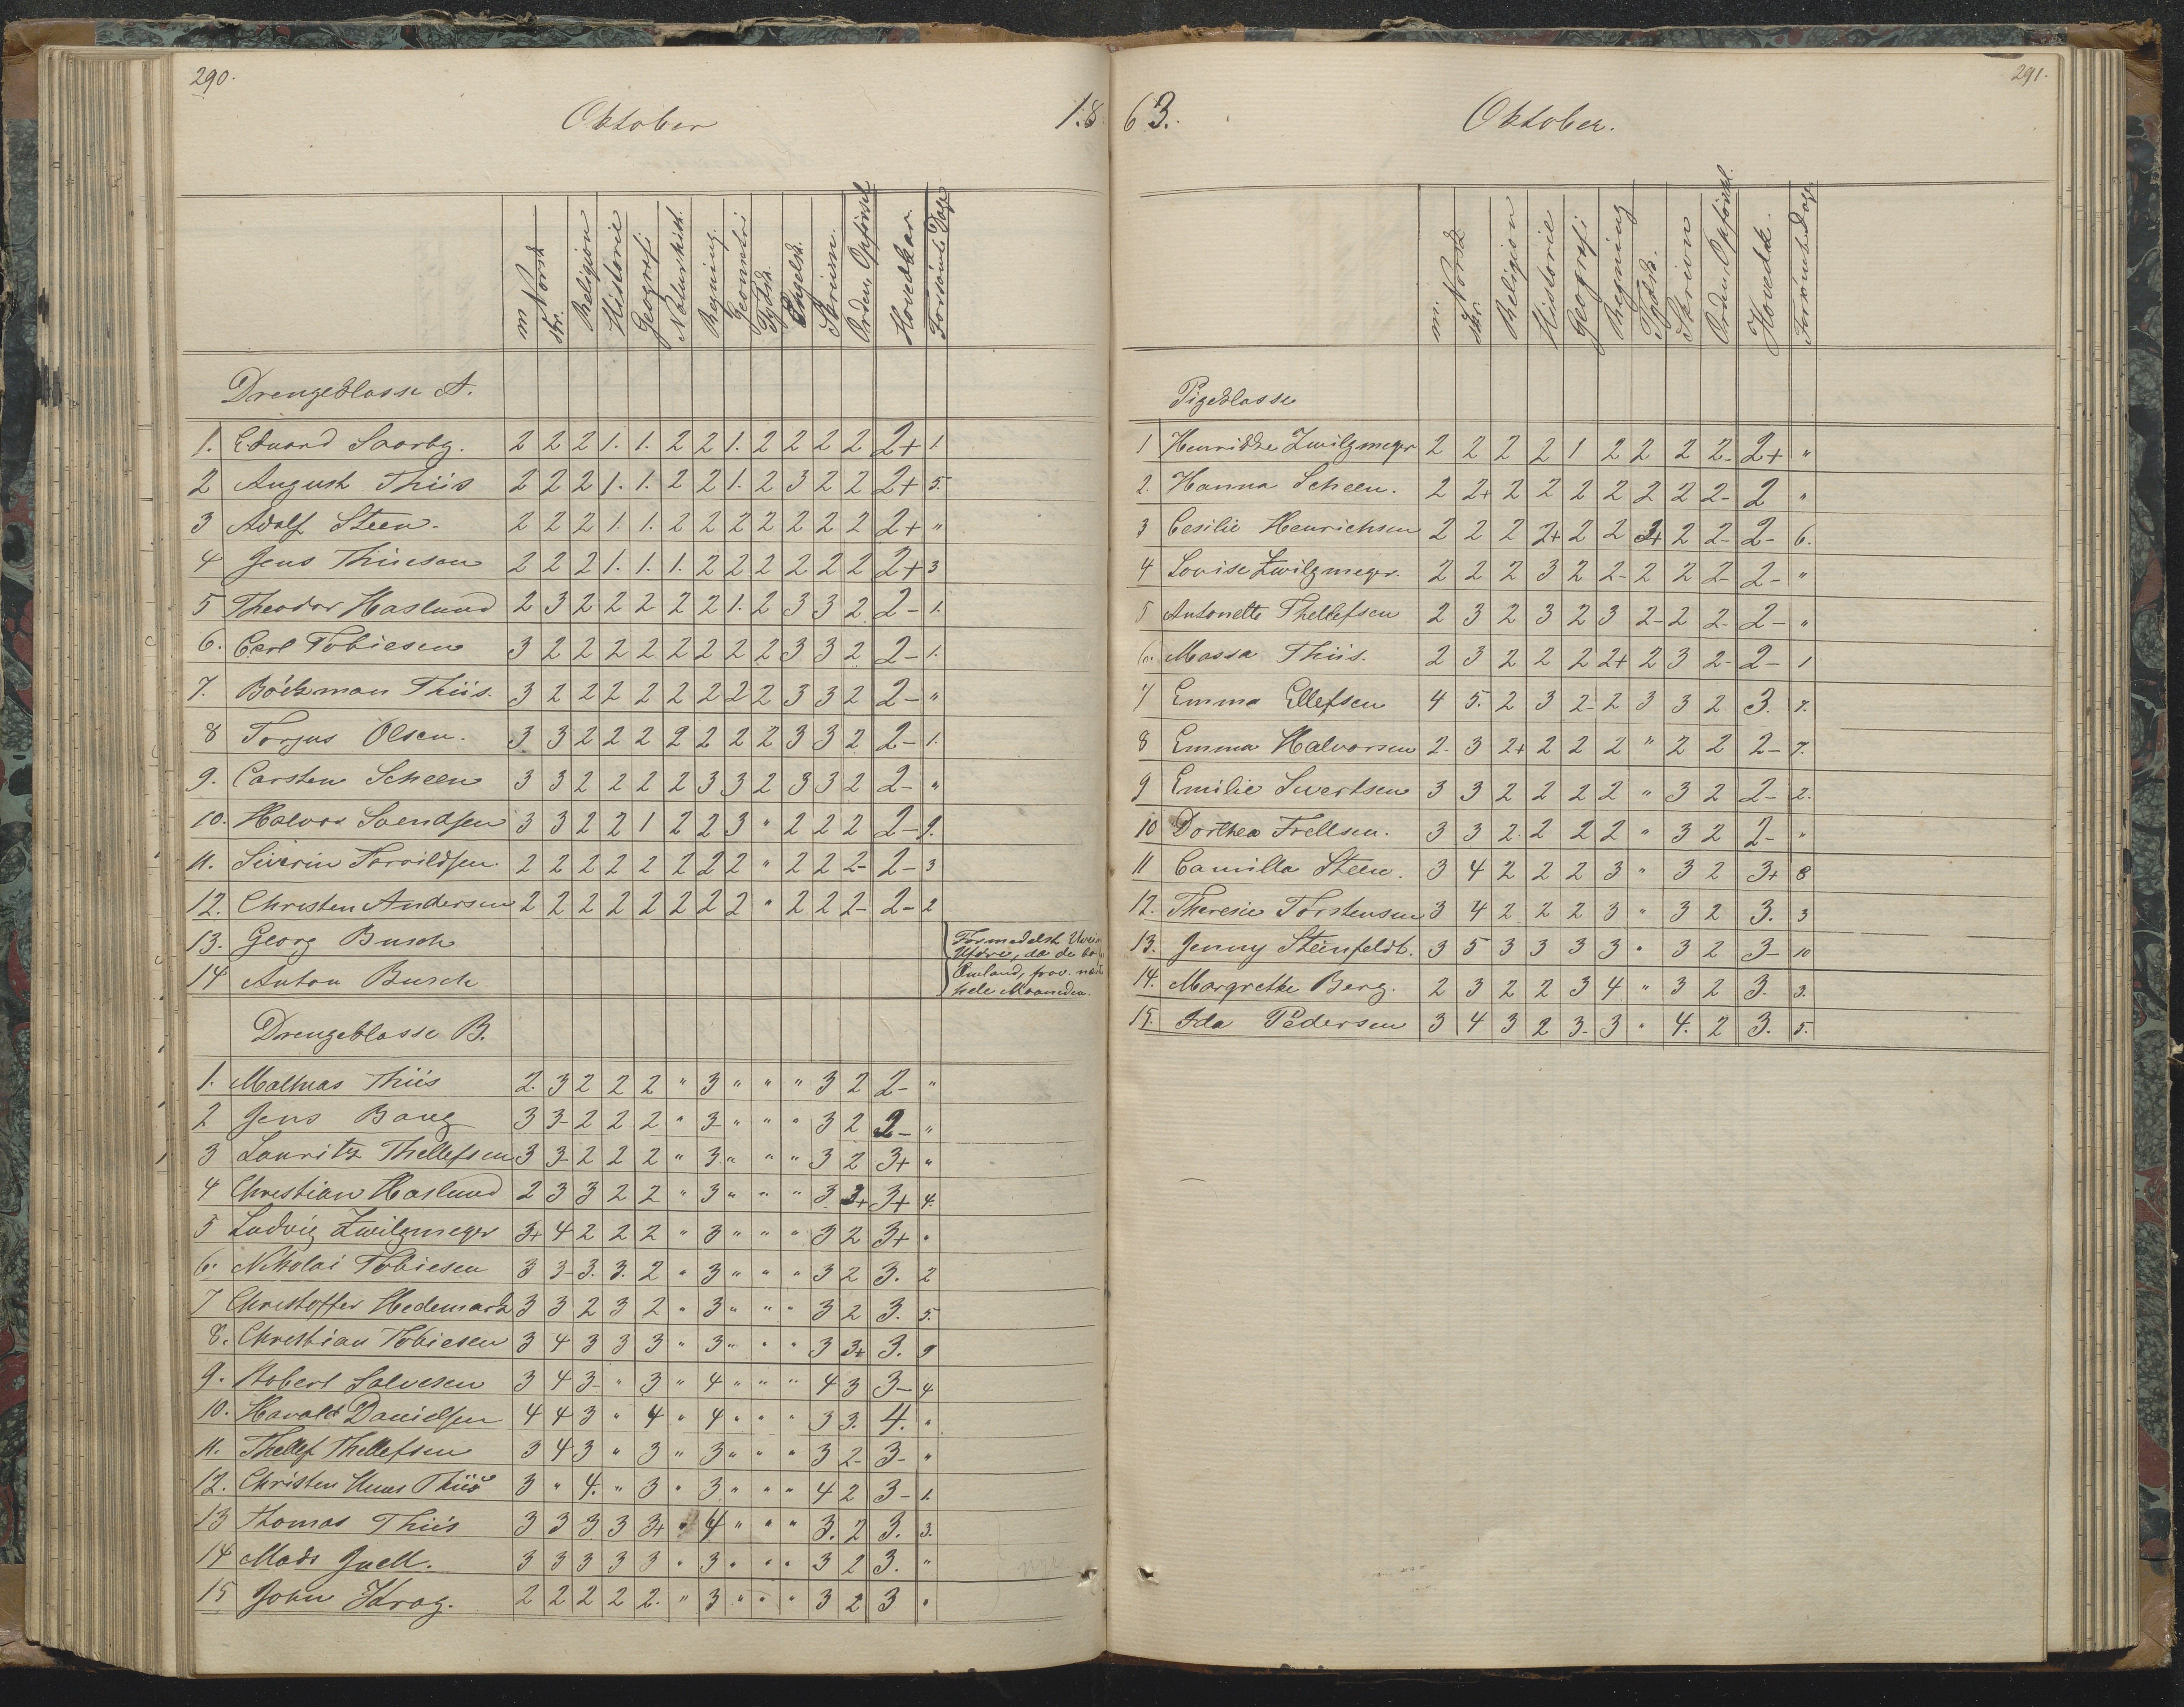 290.
Oktober 18
m. Norsk skr. Religion Historie Geografi Naturhist. Regning. Geometri Tydsk. Engelsk. Skrivn. Orden, Opførsel Hovedkar. Forsömte Dage
Drengeklasse A.
1. Eduard Saarby. 2 2 2 1. 1. 2 2 1. 2 2 2 2 2+ 1
2 August Thiis 2 2 2 1. 1. 2 2 1. 2 3 2 2 2+ 5.
3 Adolf Steen. 2 2 2 1. 1. 2 2 2 2 2 2 2 2+ "
4 Jens Thiisen 2 2 2 1. 1. 1. 2 2 2 2 2 2 2+ 3
5 Theodor Haslund 2 3 2 2 2 2 2 1. 2 3 3 2 2- 1.
6. Carl Tobiesen 3 2 2 2 2 2 2 2 2 3 3 2 2- 1.
7. Böckman Thiis. 3 2 2 2 2 2 2 2 2 3 3 2 2- "
8 Torjus Olsen. 3 3 2 2 2 2 2 2 2 3 3 2 2- 1.
9. Carsten Scheen 3 3 2 2 2 2 3 3 2 3 3 2 2- "
10. Halvor Svendsen 3 3 2 2 1 2 2 3 " 2 2 2 2- 9.
11. Siverin Torvildsen. 2 2 2 2 2 2 2 2 " 2 2 2- 2- 3
12. Christen Andersen 2 2 2 2 2 2 2 2 " 2 2 2- 2- 2
13. Georg Busch Formedelst
14 Anton Busch da de
hele Maaneden.
Drengeklasse B.
1. Mathias Thiis 2. 3 2 2 2 " 3 " " " 3 2 2- "
2 Jens Bang 3 3- 2 2 2 " 3- " " " 3 2 2- "
3 Lauritz Thellefsen 3 3- 2 2 2 " 3. " " " 3 2 3+ "
4 Christian Haslund 2 3 3 2 2 " 3 " " " 3. 3+ 3+ 4.
5 Ludvig Zwilgmeyer 3+ 4 2 2 2 " 3 " " " 3 2 3+ "
6. Nikolai Tobiesen 3 3- 3. 3. 2 " 3 " " " 3 2 3. 2
7 Christoffer Hedemark 3 3 2 3 2 " 3 " " " 3 2 3. 5.
8. Christian Tobiesen 3 4 3 3 3 " 3 " " " 3 3+ 3. 9
9. Robert Salvesen 3 4 3- " 3 " 4 " " " 4 3 3- 4
10. Harald Danielsen 4 4 3 " 4 " 4 " " " 3 3. 4. "
11. Thellef Thellefsen 3 4 3 " 3 " 3 " " " 3 2- 3- "
12. Christen Thiis 3 " 4. " 3 " 3 " " " 4 2 3- 1.
13 Thomas Thiis 3 3 3 3 3+ " 4 " " " 3. 2 3. 3.
14 Mads Juell. 3 3 3 3 3 " 3 " " " 3 2 3. "
15 John Krag. 2 2 2 2 2. " 3 " " " 3 2 3 "
291.
63. Oktober.
m. Norsk skr. Religion Historie Geografi Regning Tydsk. Skrivn Orden, Opførsel. Hovedk. Forsömte Dage
Pigeklasse
1 Henrikke Zwilgmeyer 2 2 2 2 1 2 2 2 2- 2+ "
2. Hanna Scheen. 2 2+ 2 2 2 2 2 2 2- 2 "
3 Cesilie Henrichsen 2 2 2 2+ 2 2 3+ 2 2- 2- 6.
4 Lovise Zwilgmeyer. 2 2 2 3 2 2- 2 2 2- 2- "
5 Antonette Thellefsen 2 3 2 3 2 3 2- 2 2- 2- "
6. Massa Thiis. 2 3 2 2 2 2+ 2 3 2- 2- 1
7 Emma Ellefsen 4 5. 2 3 2- 2 3 3 2 3. 7.
8 Emma Halvorsen 2- 3 2+ 2 2 2 " 2 2 2- 7.
9 Emilie Sivertsen 3 3 2 2 2 2 " 3 2 2- 2.
10 Dorthea Frellsen. 3 3 2. 2 2 2 " 3 2 2- "
11 Camilla Steen. 3 4 2 2 2 3 " 3 2 3+ 8
12. Theresie Torstensen 3 4 2 2 2 3 " 3 2 3. 3
13. Jenny Steinfeldt. 3 5 3 3 3 3 " 3 2 3- 10
14. Margrethe Berg. 2 3 2 2 3 4 " 3 2 3- 3.
15. Ida Pedersen 3 4 3 2 3- 3 " 4. 2 3. 5.